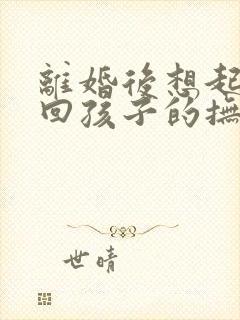 離婚後想起
回孩子的撫
世晴